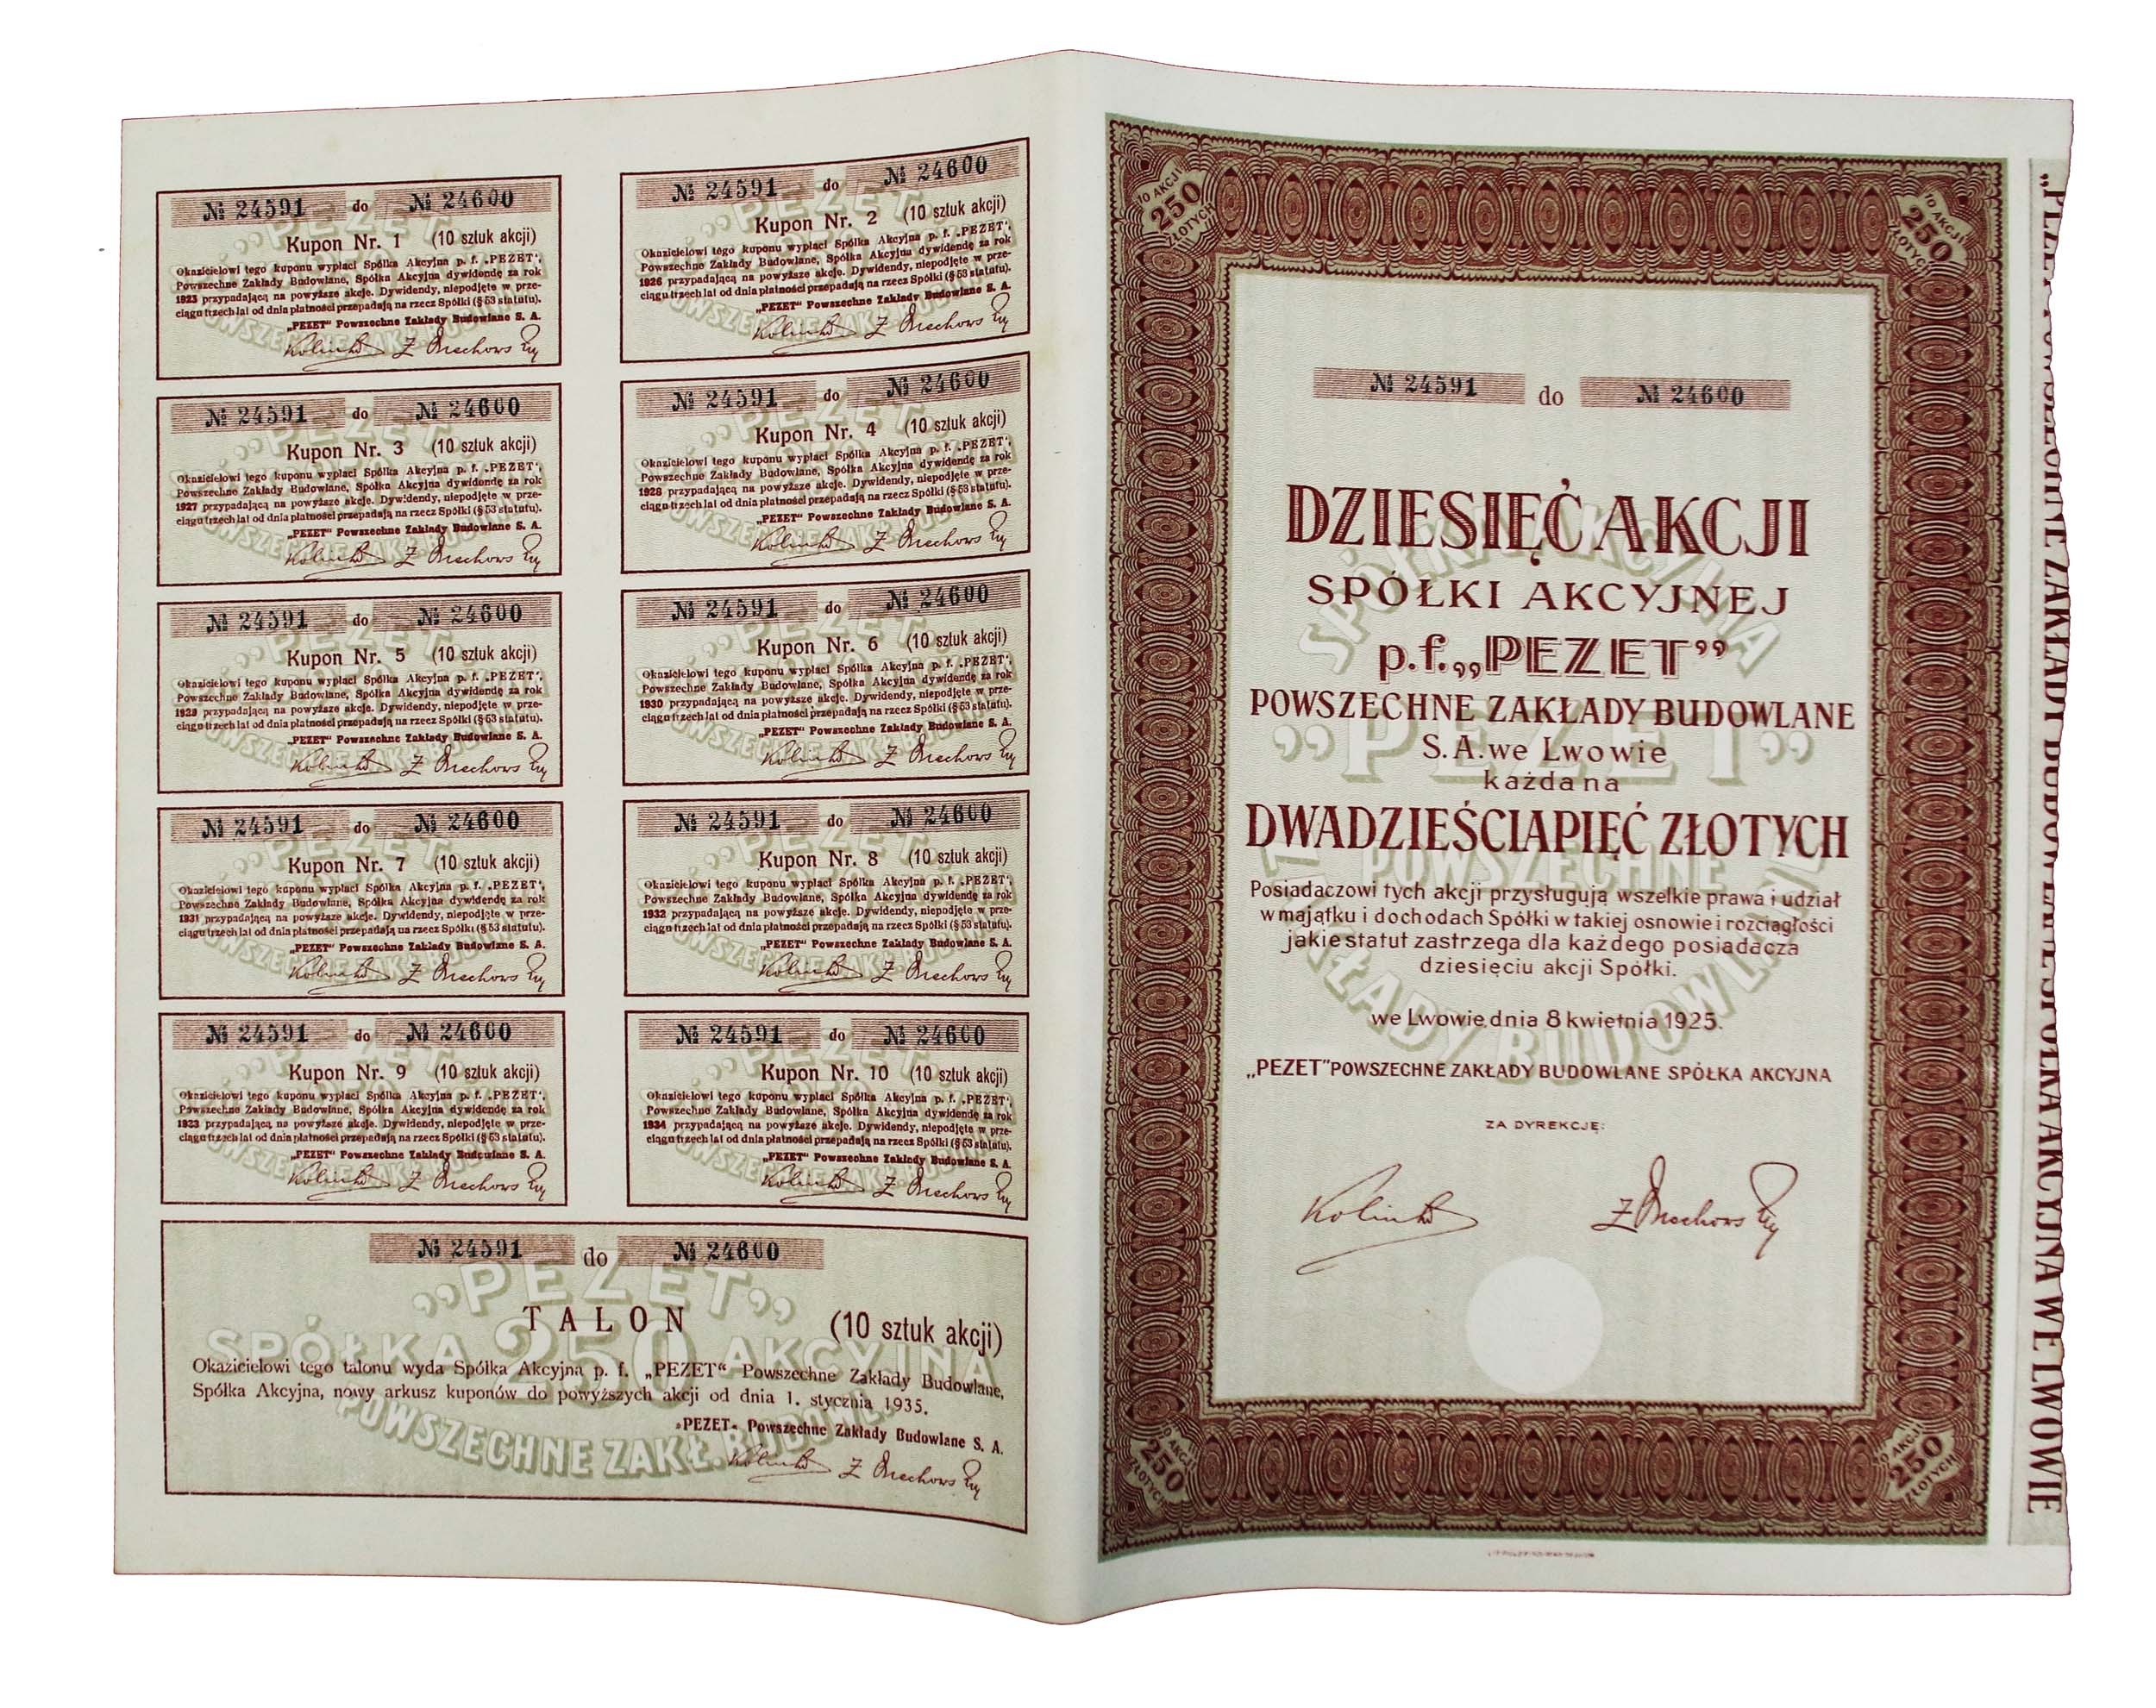 № 24591 do № 24600
Kupon Nr. 1 (10 sztuk akcji)
Okazicielowi tego kuponu wypłaci Spółka Akcyjna p. f. „PEZET",
Powszechne Zakłady Budowlane, Spółka Akcyjna dywidendę za rok
przypadającą na powyższe akcje. Dywidendy, niepodjęte w prze-
ciągu trzech lat od dnia płatności przepadają na rzecz Spółki (§ 53 statutu).
„PEZET" Powszechne Zakłady Budowlane S. A.
№ 24591 do № 24600
Kupon Nr. 2 (10 sztuk akcji)
Okazicielowi tego kuponu wypłaci Spółka Akcyjna p. f. „PEZET",
Powszechne Zakłady Budowlane, Spółka Akcyjna dywidendę za rok
1926 przypadającą na powyższe akcje. Dywidendy, niepodjęte w prze-
ciągu trzech lat od dnia płatności przepadają na rzecz Spółki (§ 53 statutu).
„PEZET" Powszechne Zakłady Budowlane S. A.
№ 24591 do № 24600
Kupon Nr. 3 (10 sztuk akcji)
Okazicielowi tego kuponu wypłaci Spółka Akcyjna p. f. „PEZET",
Powszechne Zakłady Budowlane, Spółka Akcyjna dywidendę za rok
1927 przypadającą na powyższe akcje. Dywidendy, niepodjęte w prze-
ciągu trzech lat od dnia płatności przepadają na rzecz Spółki (§ 53 statutu).
„PEZET" Powszechne Zakłady Budowlane S. A.
№ 24591 do № 24600
Kupon Nr. 4 (10 sztuk akcji)
Okazicielowi tego kuponu wypłaci Spółka Akcyjna p. f. „PEZET",
Powszechne Zakłady Budowlane, Spółka Akcyjna dywidendę za rok
1928 przypadającą na powyższe akcje. Dywidendy, niepodjęte w prze-
ciągu trzech lat od dnia płatności przepadają na rzecz Spółki (§ 53 statutu).
„PEZET" Powszechne Zakłady Budowlane S. A.
№ 24591 do № 24600
Kupon Nr. 5 (10 sztuk akcji)
Okazicielowi tego kuponu wypłaci Spółka Akcyjna p. f. „PEZET",
Powszechne Zakłady Budowlane, Spółka Akcyjna dywidendę za rok
przypadającą na powyższe akcje. Dywidendy, niepodjęte w prze-
ciągu trzech lat od dnia płatności przepadają na rzecz Spółki (§ 53 statutu).
„PEZET" Powszechne Zakłady Budowlane S. A.
№ 24591 do № 24600
Kupon Nr. 6 (10 sztuk akcji)
Okazicielowi tego kuponu wypłaci Spółka Akcyjna p. f. „PEZET",
Powszechne Zakłady Budowlane, Spółka Akcyjna dywidendę za rok
1930 przypadającą na powyższe akcje. Dywidendy, niepodjęte w prze-
ciągu trzech lat od dnia płatności przepadają na rzecz Spółki (§ 53 statutu).
„PEZET" Powszechne Zakłady Budowlane S. A.
№ 24591 do № 24600
Kupon Nr. 7 (10 sztuk akcji)
Okazicielowi tego kuponu wypłaci Spółka Akcyjna p. f. „PEZET",
Powszechne Zakłady Budowlane, Spółka Akcyjna dywidendę za rok
1931 przypadającą na powyższe akcje. Dywidendy, niepodjęte w prze-
ciągu trzech lat od dnia płatności przepadają na rzecz Spółki (§ 53 statutu).
„PEZET" Powszechne Zakłady Budowlane S. A.
№ 24591 do № 24600
Kupon Nr. 8 (10 sztuk akcji)
Okazicielowi tego kuponu wypłaci Spółka Akcyjna p. f. „PEZET",
Powszechne Zakłady Budowlane, Spółka Akcyjna dywidendę za rok
1932 przypadającą na powyższe akcje. Dywidendy, niepodjęte w prze-
ciągu trzech lat od dnia płatności przepadają na rzecz Spółki (§ 53 statutu).
„PEZET" Powszechne Zakłady Budowlane S. A.
№ 24591 do № 24600
Kupon Nr. 9 (10 sztuk akcji)
Okazicielowi tego kuponu wypłaci Spółka Akcyjna p. f. „PEZET",
Powszechne Zakłady Budowlane, Spółka Akcyjna dywidendę za rok
1933 przypadającą na powyższe akcje. Dywidendy, niepodjęte w prze-
ciągu trzech lat od dnia płatności przepadają na rzecz Spółki (§ 53 statutu).
„PEZET" Powszechne Zakłady Budowlane S. A.
№ 24591 do № 24600
Kupon Nr. 10 (10 sztuk akcji)
Okazicielowi tego kuponu wypłaci Spółka Akcyjna p. f. „PEZET",
Powszechne Zakłady Budowlane, Spółka Akcyjna dywidendę za rok
1934 przypadającą na powyższe akcje. Dywidendy, niepodjęte w prze-
ciągu trzech lat od dnia płatności przepadają na rzecz Spółki (§ 53 statutu).
„PEZET" Powszechne Zakłady Budowlane S. A.
№ 24591 do № 24600
TALON (10 sztuk akcji)
„PEZET"
SPÓŁKA 250 AKCYJNA
POWSZECHNE ZAKŁ. BUDOWL.
Okazicielowi tego talonu wyda Spółka Akcyjna p. f. „PEZET" Powszechne Zakłady Budowlane,
Spółka Akcyjna, nowy arkusz kuponów do powyższych akcji od dnia 1. stycznia 1935.
„PEZET" Powszechne Zakłady Budowlane S. A.
10 AKCJI
250
ZŁOTYCH
10 AKCJI
250
ZŁOTYCH
№ 24591 do № 24600
DZIESIĘĆ AKCJI
SPÓŁKI AKCYJNEJ
p.f. „PEZET"
POWSZECHNE ZAKŁADY BUDOWLANE
S.A. we Lwowie
każda na
DWADZIEŚCIAPIĘĆ ZŁOTYCH
Posiadaczowi tych akcji przysługują wszelkie prawa i udział
w majątku i dochodach Spółki w takiej osnowie i rozciągłości
jakie statut zastrzega dla każdego posiadacza
dziesięciu akcji Spółki.
we Lwowie dnia 8 kwietnia 1925.
„PEZET" POWSZECHNE ZAKŁADY BUDOWLANE SPÓŁKA AKCYJNA
ZA DYREKCJĘ:
SPÓŁKA AKCYJNA
„PEZET"
POWSZECHNE
ZAKŁADY BUDOWLANE
10 AKCJI
250
ZŁOTYCH
10 AKCJI
250
ZŁOTYCH
„PEZET" POWSZECHNE ZAKŁADY BUDOWLANE SPÓŁKA AKCYJNA WE LWOWIE